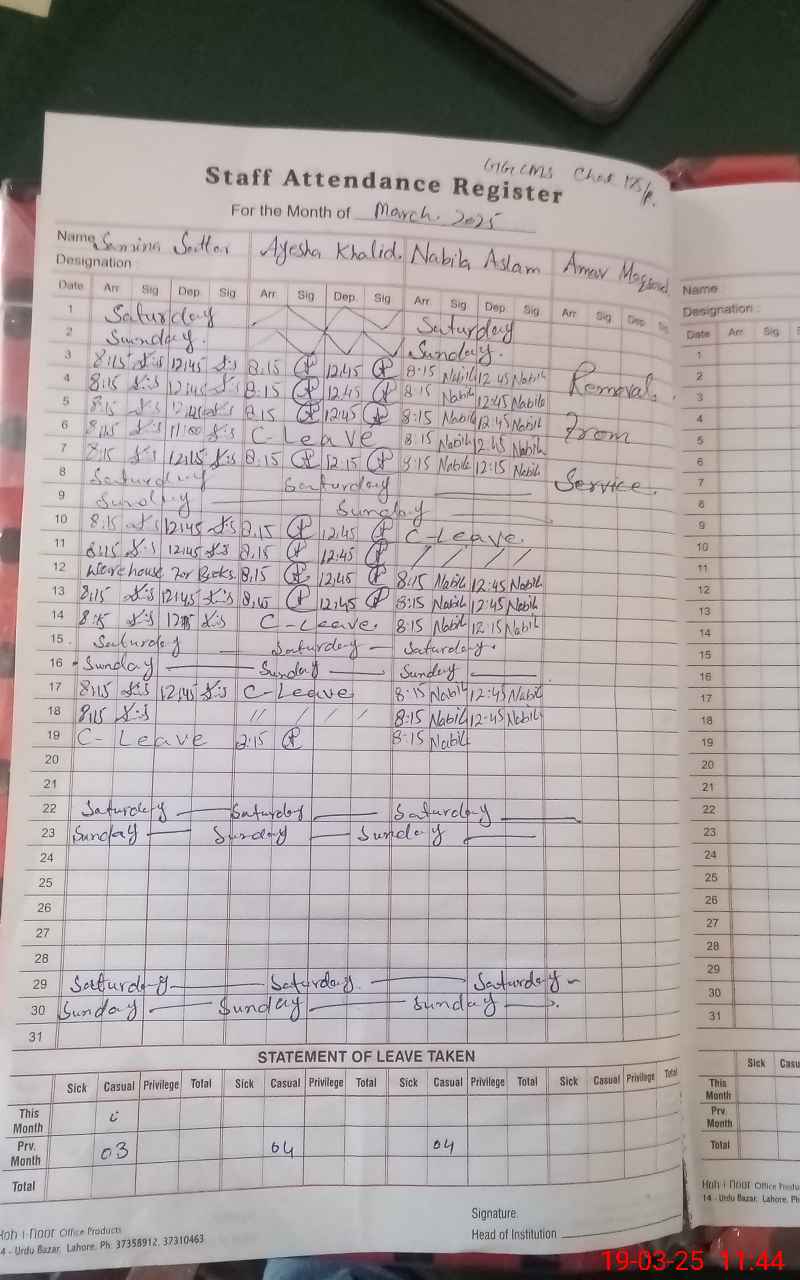 GGCMS Chak 175/P.
Staff Attendance Register
For the Month of March. 2025
Name Samina Sattar Ayesha Khalid. Nabila Aslam Amar
Designation :
Date Arr Sig Dep Sig Arr Sig Dep. Sig Arr. Sig Dep Sig Arr Sig Dep Sig
1 Saturday Saturday
2 Sunday. Sunday.
3 8:15 12:45 8:15 12:45 8:15 Nabila 12:45 Nabila
4 8:15 12:45 8:15 12:45 8:15 Nabila 12:45 Nabila Removal.
5 8:15 12:45 8:15 12:45 8:15 Nabila 12:45 Nabila
6 8:15 11:00 C-Leave 8:15 Nabila 12:45 Nabila From
7 8:15 12:15 8:15 12:15 8:15 Nabila 12:15 Nabila
8 Saturday Saturday Service.
9 Sunday Sunday
10 8:15 12:45 8:15 12:45 C-Leave.
11 8:15 12:45 8:15 12:45 / / / /
12 Warehouse For Books. 8:15 12:45 8:15 Nabila 12:45 Nabila
13 8:15 12:45 8:15 12:45 8:15 Nabila 12:45 Nabila
14 8:15 C-Leave. 8:15 Nabila 12:15 Nabila
15 Saturday Saturday Saturday.
16 Sunday Sunday Sunday
17 8:15 12:45 C-Leave 8:15 Nabila 12:45 Nabila
18 8:15 // / / / 8:15 Nabila 12:45 Nabila
19 C-Leave 8:15 Nabila
20
21
22 Saturday Saturday Saturday
23 Sunday Sunday Sunday
24
25
26
27
28
29 Saturday Saturday. Saturday
30 Sunday Sunday Sunday
31
STATEMENT OF LEAVE TAKEN
Sick Casual Privilege Total Sick Casual Privilege Total Sick Casual Privilege Total Sick Casual Privilege Total
This Month
Prv. Month 03 04 04
Total
Signature.
Head of Institution
Koh-i-Noor Office Products
14 - Urdu Bazar, Lahore. Ph. 37358912, 37310463
Name
Designation :
Date Arr Sig
1
2
3
4
5
6
7
8
9
10
11
12
13
14
15
16
17
18
19
20
21
22
23
24
25
26
27
28
29
30
31
Sick
This Month
Prv. Month
Total
Koh-i-Noor Office
14 - Urdu Bazar, Lahore.
19-03-25 11:44